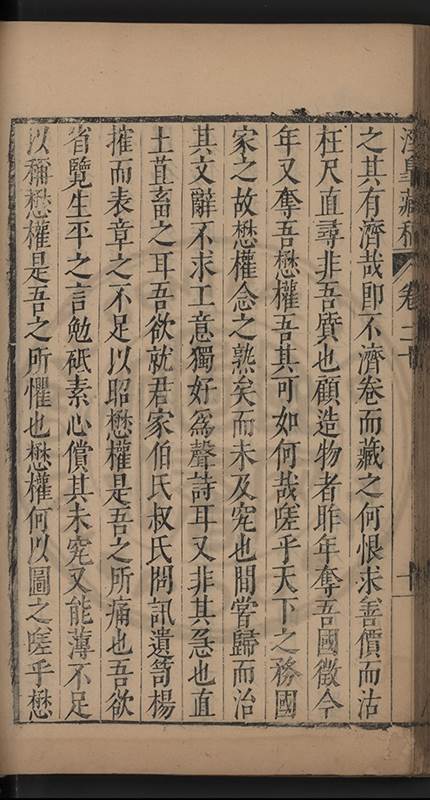 涇臯藏稿 卷二十 十
之其有濟哉即不濟卷而藏之何恨求善價而沽
枉尺直尋非吾質也顧造物者昨年奪吾國徵今
年又奪吾懋權吾其可如何哉嗟乎天下之務國
家之故懋權念之熟矣而未及究也間嘗歸而治
其文辭不求工意獨好為聲詩耳又非其急也直
土苴畜之耳吾欲就君家伯氏叔氏問訊遺笥楊
搉而表章之不足以昭懋權是吾之所痛也吾欲
省覽生平之言勉祗素心償其未究又能薄不足
以稱懋權是吾之所懼也懋權何以圖之嗟乎懋